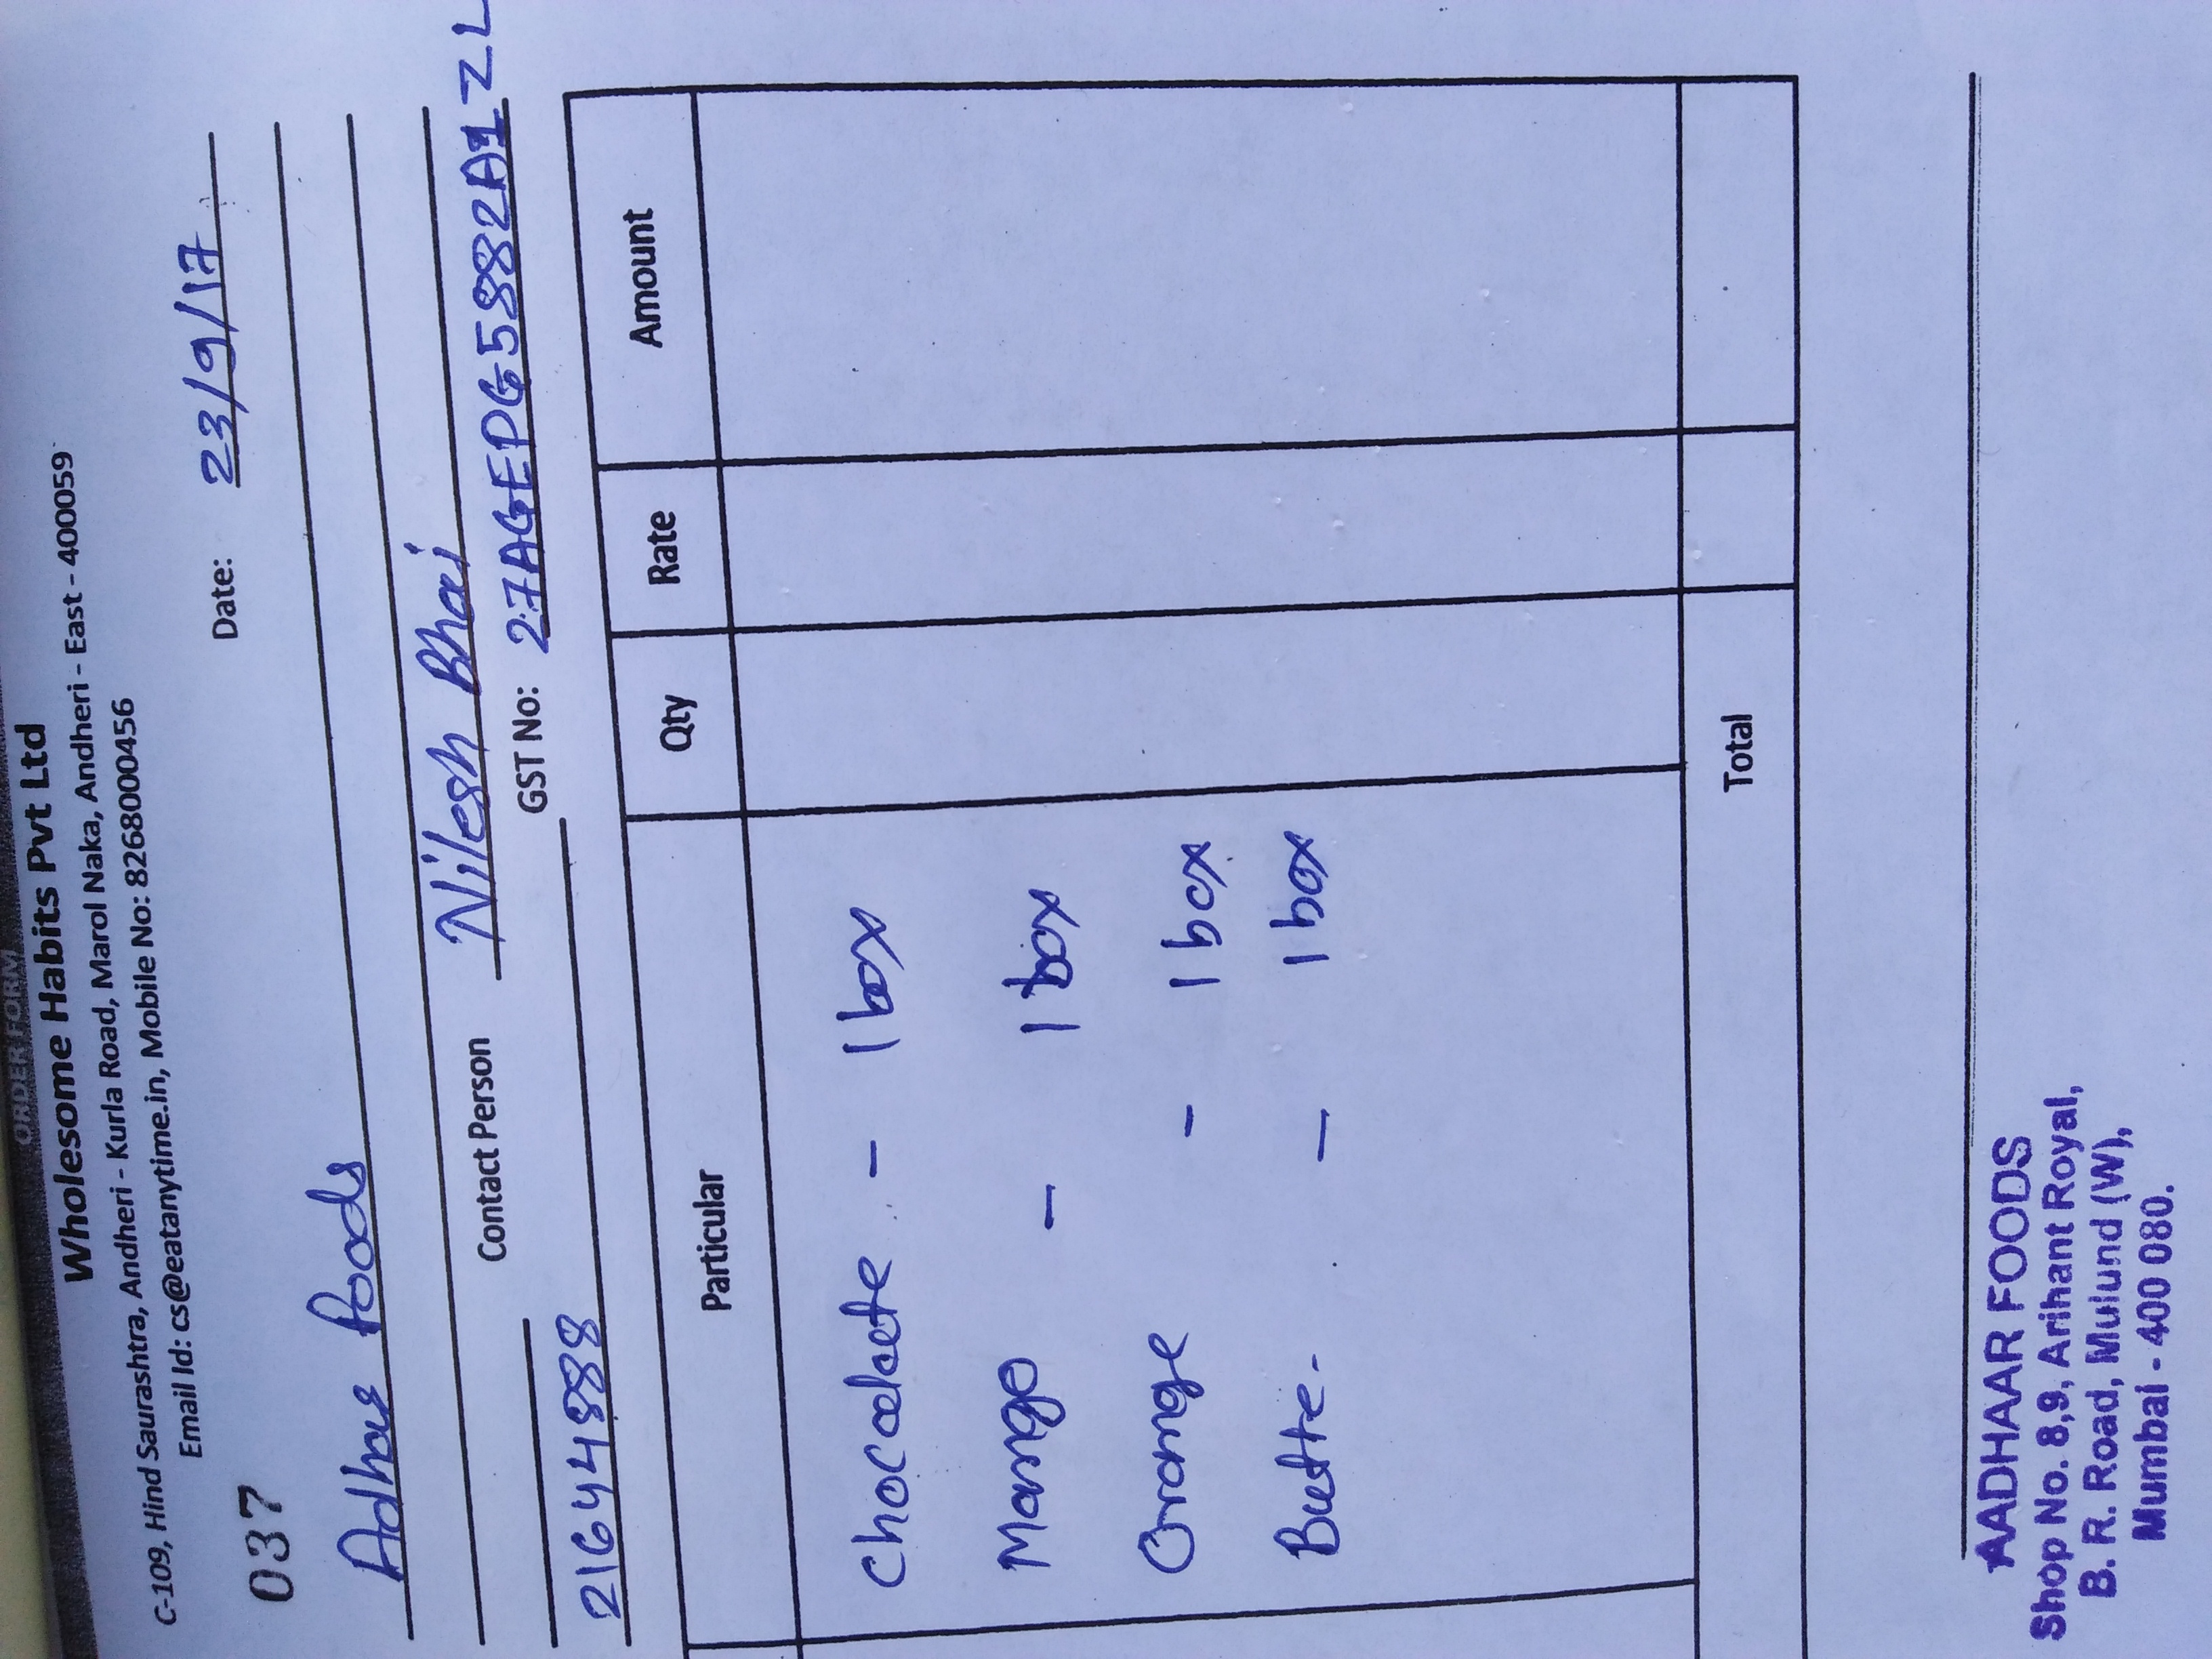 ORDER FORM
Wholesome Habits Pvt Ltd
C-109, Hind Saurashtra, Andheri - Kurla Road, Marol Naka, Andheri - East - 400059
Email Id: cs@eatanytime.in, Mobile No: 8268000456
037 Date: 23/9/17
Adhar foods
Contact Person Nilesh Bhai
21644888 GST No: 27AGEPG5882A1ZL
Particular Qty Rate Amount
Chocolate - 1 box
Mango - 1 box
Orange - 1 box
Butte. - 1 box
Total
AADHAAR FOODS
Shop No. 8,9, Arihant Royal,
B. R. Road, Mulund (W),
Mumbai - 400 080.